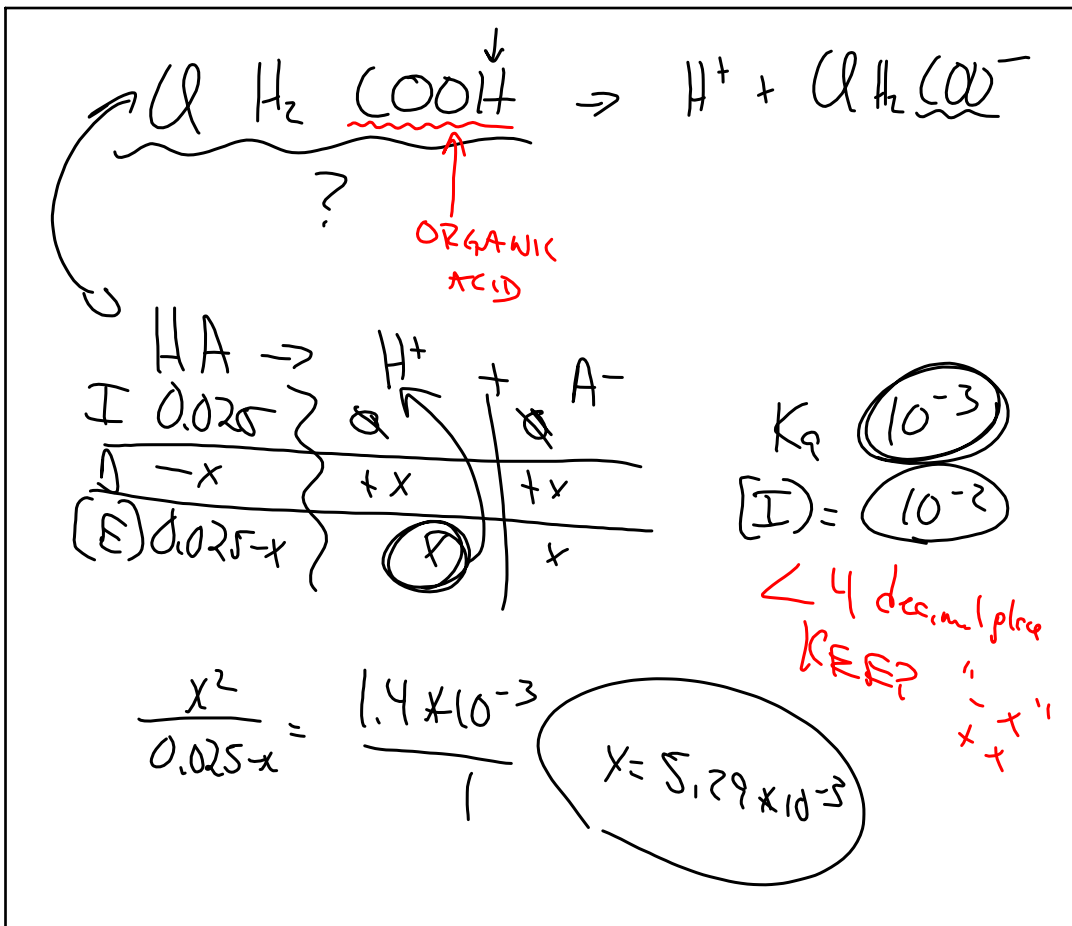 Cl H₂ COOH → H⁺ + Cl H₂ COO⁻
?
ORGANIC
ACID
HA → H⁺ + A⁻
I 0.025 0 0
Δ -x +x +x
(E) 0.025-x x x
Ka 10⁻³
[I) = 10⁻²
< 4 decimal place
KEEP "-x"
x x
x²/0.025-x = 1.4*10⁻³/1
x = 5.29*10⁻³